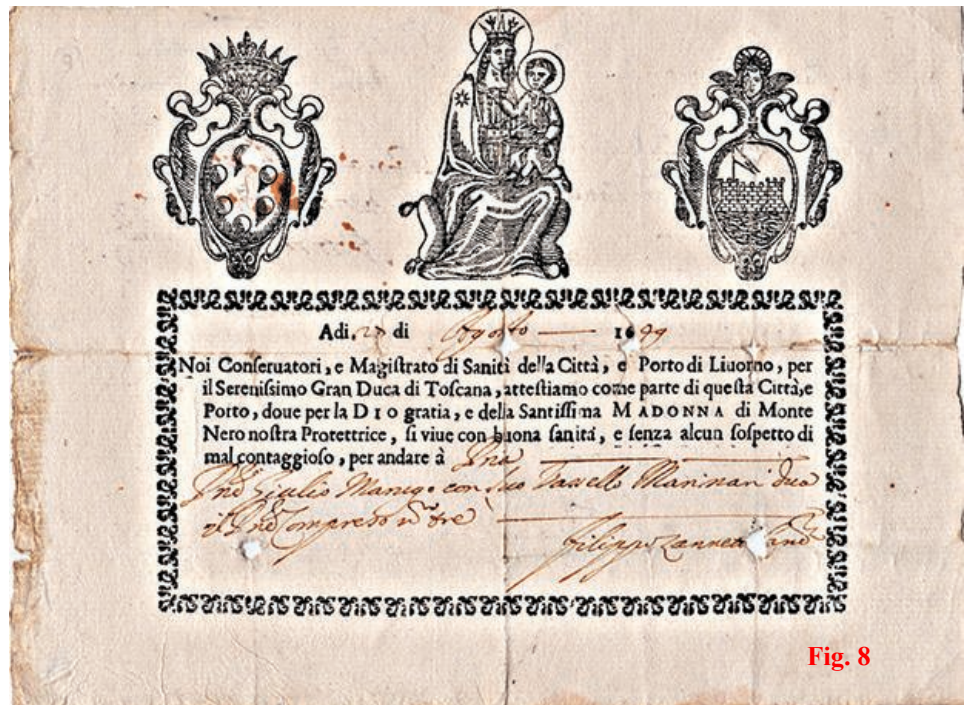 Adi, 27 di Agosto — 1699
Noi Conseruatori, e Magistrato di Sanità della Città, e Porto di Liuorno, per
il Serenissimo Gran Duca di Toscana, attestiamo come parte di questa Città, e
Porto, doue per la DIO gratia, e della Santissima MADONNA di Monte
Nero nostra Protettrice, si viue con buona sanità, e senza alcun sospetto di
mal contaggioso, per andare à
Giulio con suo Vassello Marinari dua
il compreso tre
Filippo
Fig. 8